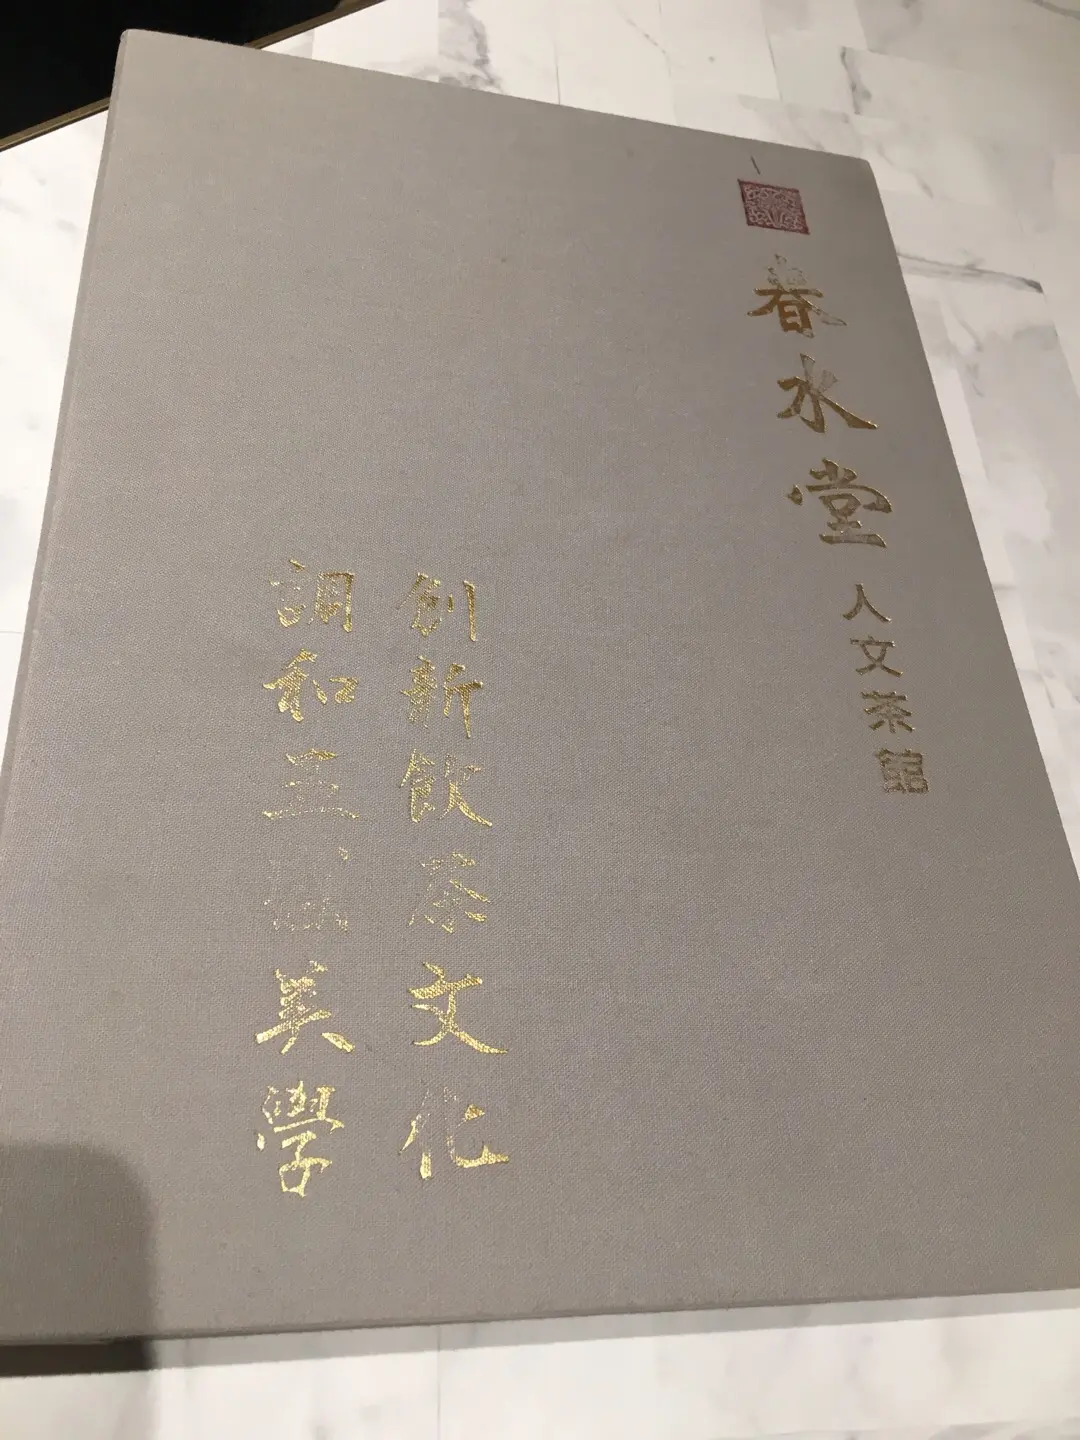 春水堂 人文茶館
創新飲茶文化
調和五感美學